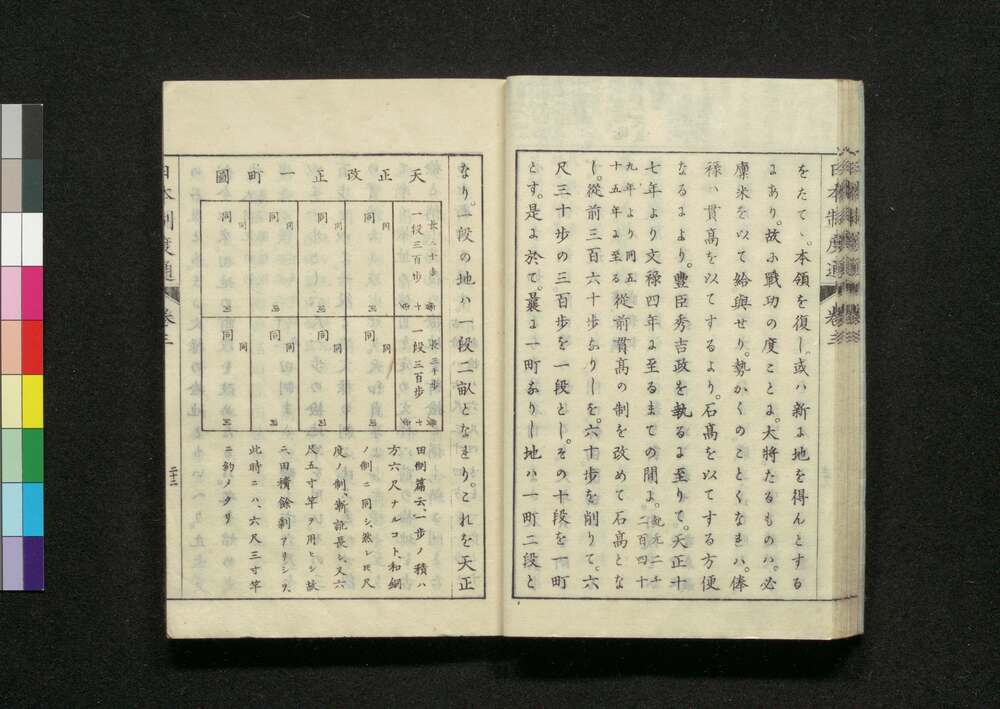 をたて、本領を復し。或ハ新ゟ地を得んとする
ゟあり。故ふ戰功の度ことゟ。大將たるものハ。必
廩米を以て給與せり。勢かくのことくなれハ。俸
祿ハ貫高を以てするより。石高を以てする方便
なるゟより。豐臣秀吉政を執るゟ至りて。天正十
七年より文祿四年ゟ至るまての間ゟ。紀元二千二百四十
九年より同五十五年ゟ至る從前貫高の制を改めて石高とな
し。從前三百六十歩なりしを。六十歩を削りて。六
尺三十歩の三百歩を一段とし。その十段を一町
とす。是ゟ於て。曩ゟ一町なりし地ハ一町二段と
日本制度通 卷三
なり。一段の地ハ一段二畝となれり。これを天正
天正改正一町圖
長三十歩
一段三百歩
同
同
同
同
同
同
同
同
長三十歩
一段三百歩
同
同
同
同
同
同
同
同
田制篇云、一歩ノ積ハ
方六尺ナルコト、和銅
ノ制ニ同シ、然レㇳ尺
度ノ制、漸訛長シ、又六
尺五寸竿ヲ用ヒシ故
ニ、田積餘剰アリシヲ、
此時ニハ、六尺三寸竿
ニ釣メタリ
日本制度通 卷三
二十二